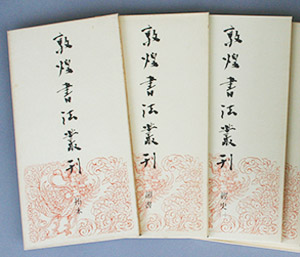 敦煌書法叢刊
拓本
敦煌書法叢刊
韻書
敦煌書法叢刊
經史